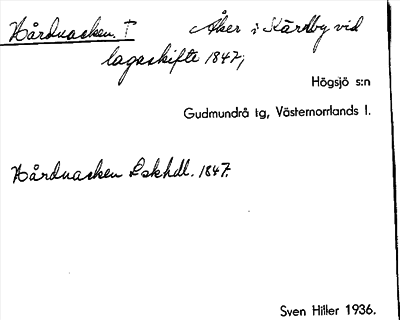 Hårdnacken. T Åker i Kärrby vid
lagaskifte 1847,
Högsjö s:n
Gudmundrå tg, Västernorrlands l.
Hårdnacken Lskhdl. 1847.
Sven Hiller 1936.